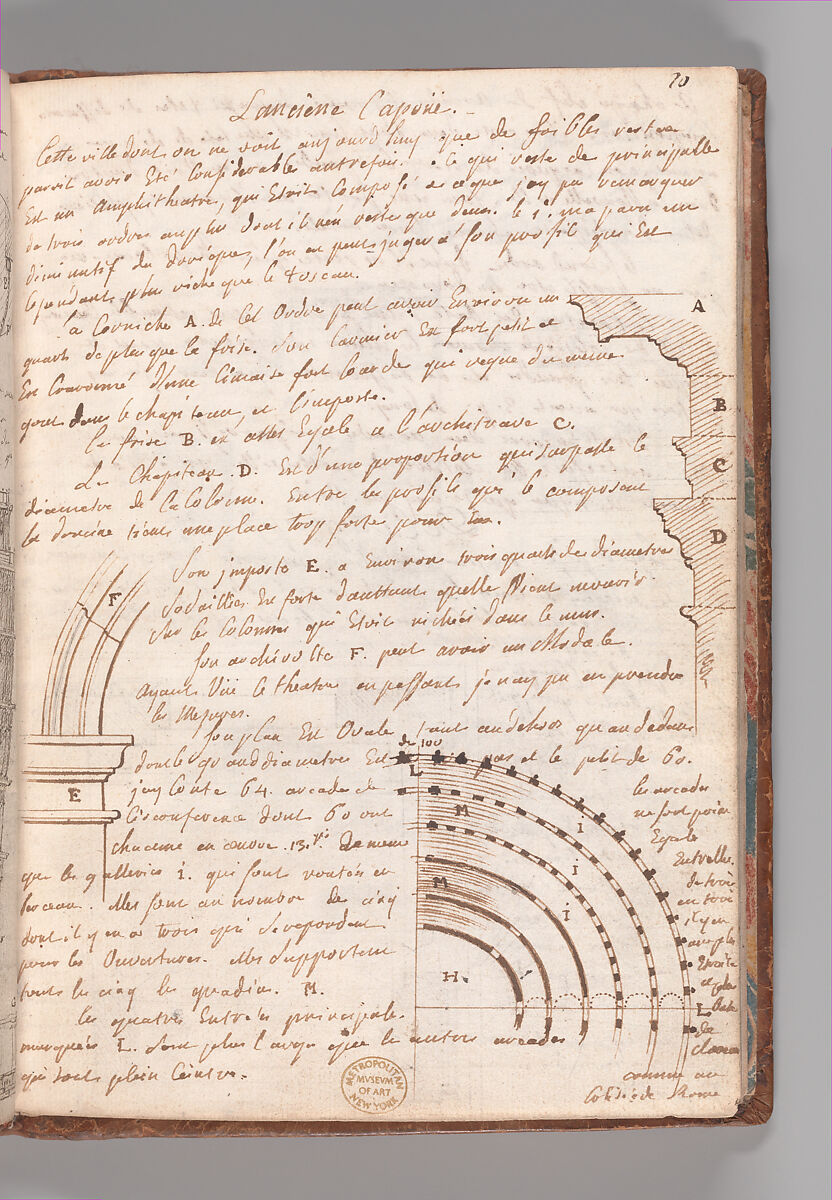 20
Lanciêne Capoüe.
Cette ville dont on ne voit aujourdhuy que de foibles restes
paroit avoir Eté Considerable autrefois. Ce qui reste de principalle
Est un Amphitheatre, qui Etoit Composé a ce que jay pu remarquer
de trois ordres au plus dont il n'en reste que deux. le 1. ma paru un
diminutif du dorique, l'on en peut juger a son profil qui Est
Cependant plus riche que le toscan.
la Corniche A. de Cet Ordre peut avoir Environ un
quart de plus que la frise. Son Larmier Est fort petit et
Est Couronné d'une Cimaise fort lourde qui regne du meme
gout dans le chapiteau, et l'imposte.
la frise B. est asses Egale a l'architrave C.
Le Chapiteau D. Est d'une proportion qui surpasse le
diametre de la Colonne. Entre les profils qui le composent
la doucine tient une place trop forte pour Eux.
Son jmposte E. a Environ trois quarts de diametre
Sa saillie En forte d'auttant quelle vient mourir
Sur les Colonnes qui Etoit nichées dans le mur.
Son archivolte F. peut avoir un Modele.
Ayant Vüe le theatre en passant je nay pu en prendre
les Mesures.
Son plan Est Ovale tant en dehors quen dedans
dont le grand diametre Est de 100 pas et le petit de 60.
jay Conté 64. arcades de
Circonference dont 60 ont
chacune en œuvre 13. De meme
que les galleries i. qui sont voutés en
berceau. Elles sont au nombre de cinq
dont il y en a trois qui se repondent
pour les Ouvertures. Elles Supportent
touts les cinq les gradins. M.
les quatres Entrées principale
marquées L. sont plus larges que les autres arcades
qui sont plein Ceintre.
les arcades
ne sont point
Egale
Entrelles
de trois
en trois
il y en
a un plus
Etroite
et plus
basse
de
comme au
Colisée de Rome
A
B
C
D
F
E
L
M
i
i
i
M
H
L
METROPOLITAN
MVSEVM
OF ART
NEW YORK